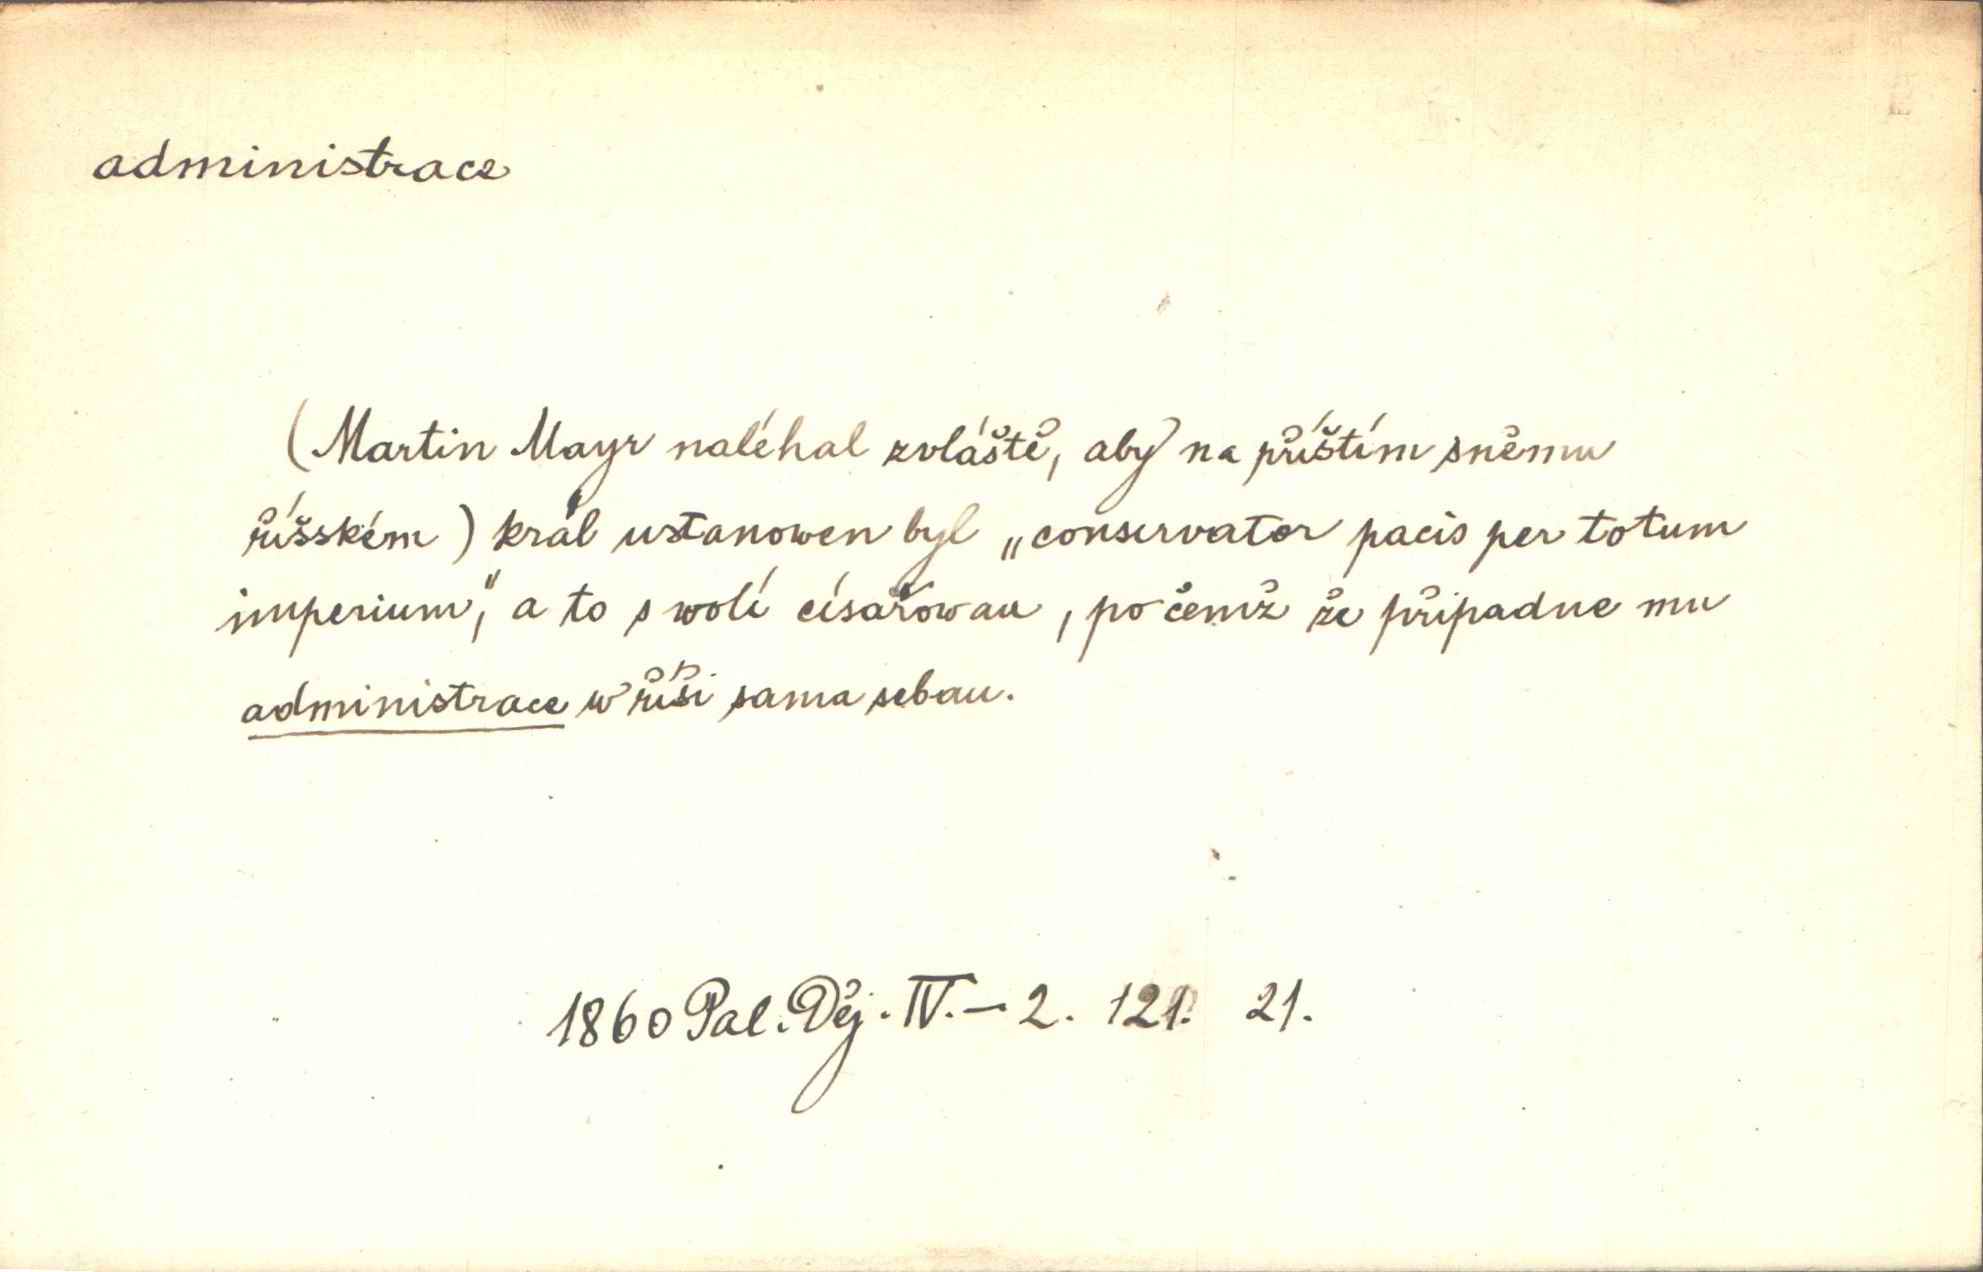 administrace
(Martin Mayr naléhal zvláště, aby na příštím sněmu
říšském) král ustanowen byl „conservator pacis per totum
imperium“, a to s wolí císařowau, po čemž že připadne mu
administrace w říši sama sebau.
1860 Pal. Děj. IV. – 2. 121. 21.